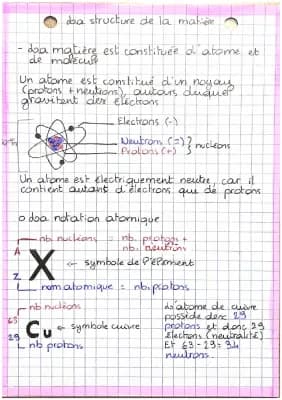 • La structure de la matière
- La matière est constituée d'atome et
de molécul
Un atome est constitué d'un noyau
(protons + neutrons), autours duquel
gravitent des électrons
Electrons (-)
Neutrons (=)
Protons (+)
nucléons
Un atome est électriquement neutre, car il
contient autant d'électrons que de protons
o La notation atomique
nb. nucléons = nb. protons +
nb. neutron
A
X ← symbole de l'élément
Z
num atomique = nb. protons
nb nucléons
63
Cu ← symbole cuivre
29
nb protons
L'atome de cuivre
possède donc 29
protons et donc 29
électrons (neutralité)
Et 63-29=34
neutrons.